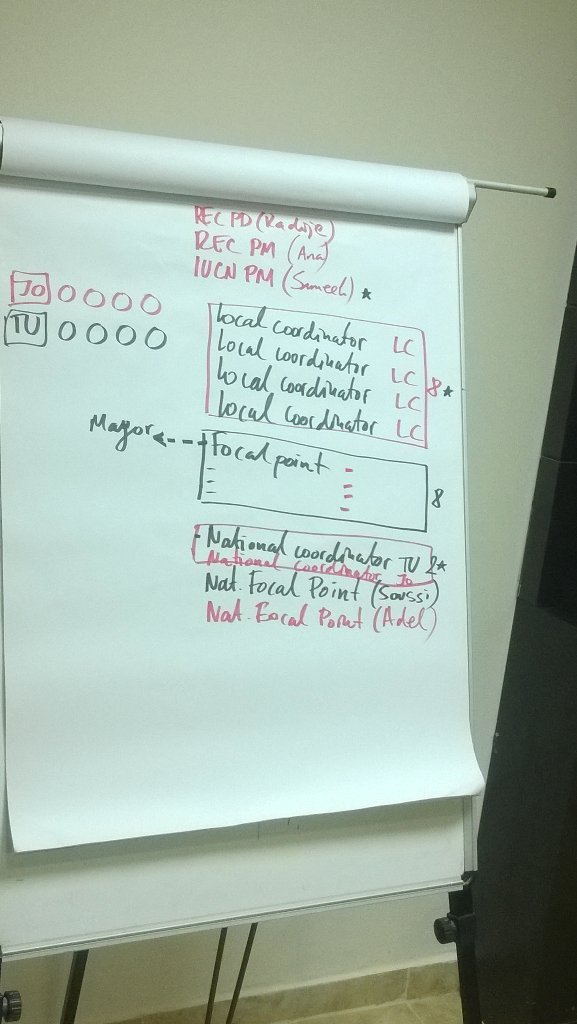 REC PD (Radwije)
REC PM (Ana)
IUCN PM (Sameeh) ★
JO O O O O
TU O O O O
Local coordinator LC
Local coordinator LC
Local coordinator LC 8 ★
Local coordinator LC
Mayor
Focal point
8
- National coordinator TU 2 ★
National Coordinator Jo
Nat. Focal Point (Soussi)
Nat. Focal Point (Adel)